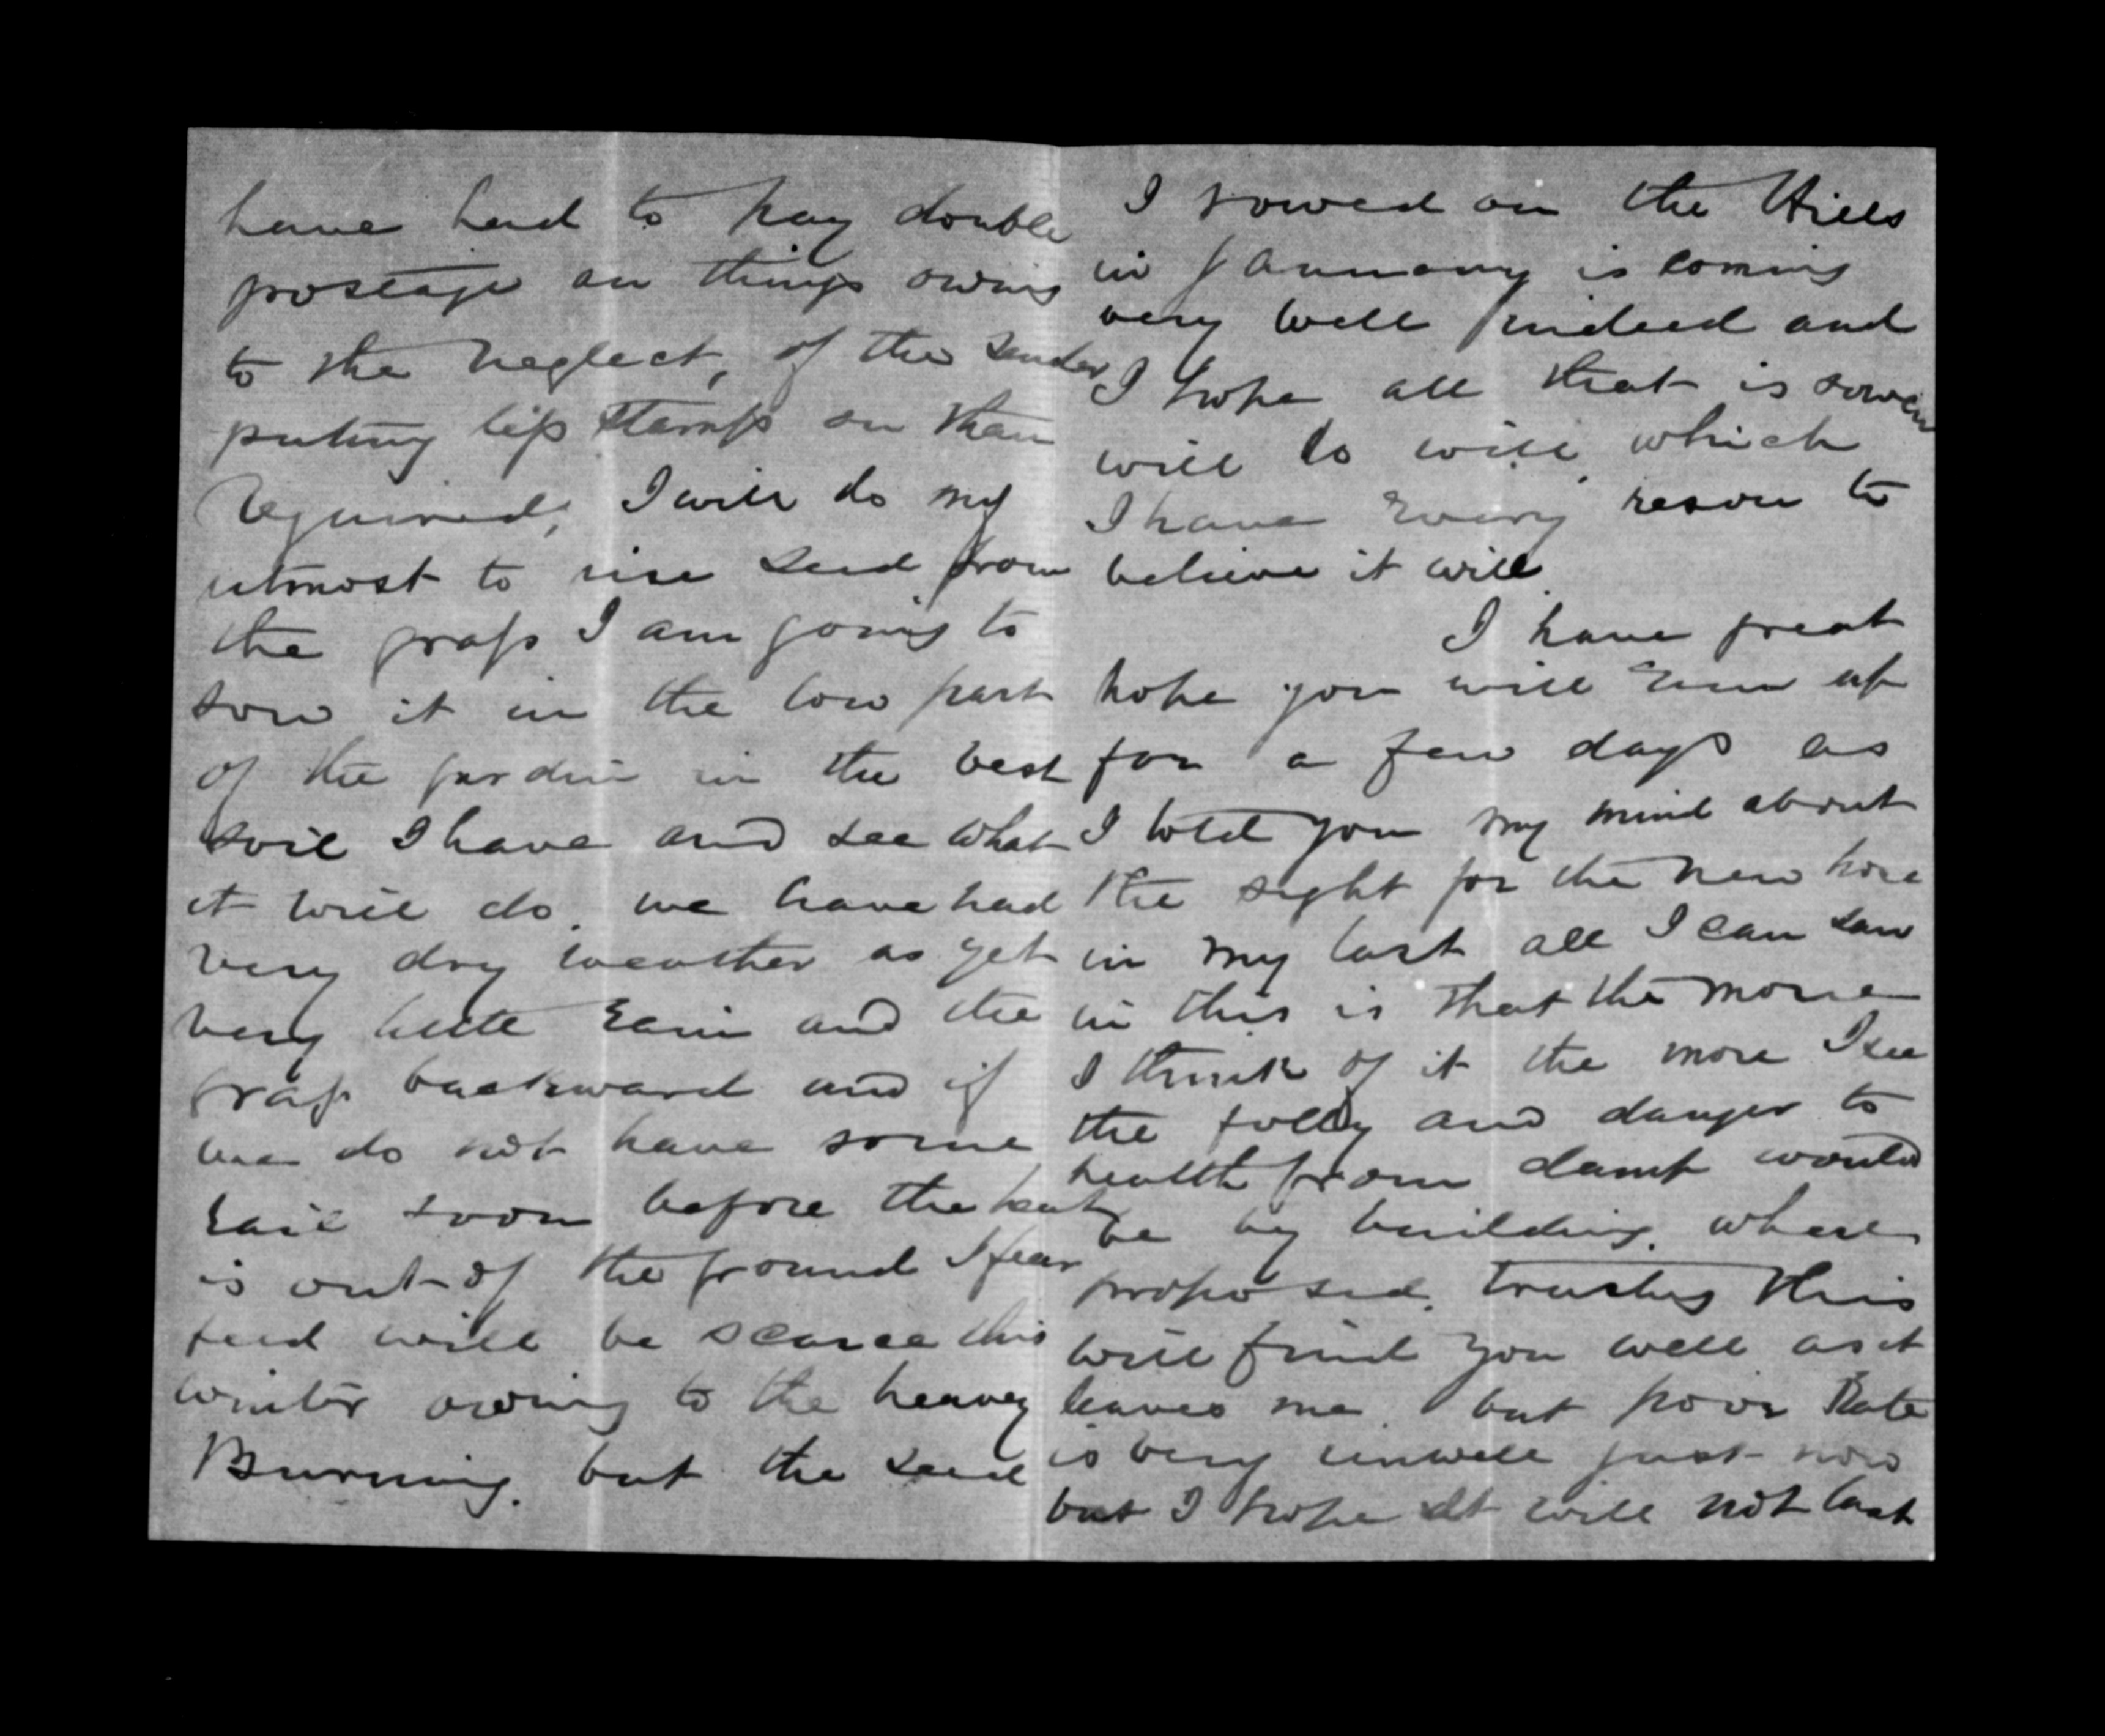 have had to pay double
prostage on things owing
to the neglect, of the sender
puting less stamps on than
required, I will do my
utmost to rise seed from
the grass I am going to
sow it in the low part
of the garden in the best
soil I have and see what
it will do. we have had
very dry weather as yet
very little rain and the
grass backward and if
we do not have some
rain soon before the heat
is out of the ground I fear
feed will be scarce this
winter owing to the heavey
Burning. but the seed
I sowed on the Hills
in January is coming
very well indeed and
I hope all that is sowen
will do well, which
I have every reson to
believe it will.
I have great
hope you will run up
for a few days as
I told you my mind about
the sight for the new
in my last all I can
in this is that the more
I think of it the more I see
the folly and danger to
health from damp would
be by building. where
proposed. trusting this
will find you well as it
leaves me. but poor Kate
is very unwell just now
but I hope it will not last